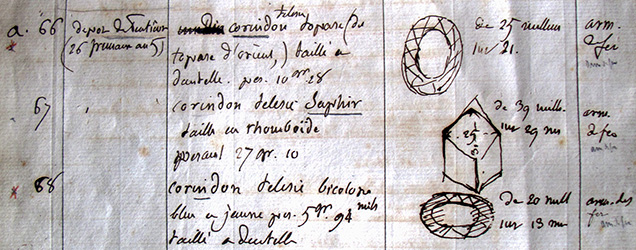 a. 66 depot de l'emtiure corindon telesie topase (de
(26 frimaire an 5) topase d'orient,) taillé a
dentelle. pes. 10 gr. 28
de 25 millim
sur 21.
arm.
2 fer
67 " " corindon telesie Saphir
taillé en rhomboïde
pesant 27 gr. 10
25
de 39 mill.
sur 29 m
arm.
2 fer
68 corindon telesie bicolore
bleu et jaune pes. 5 gr. 94 mil
taillé a dentelle
de 20 mill
sur 13 m
arm. des
fer